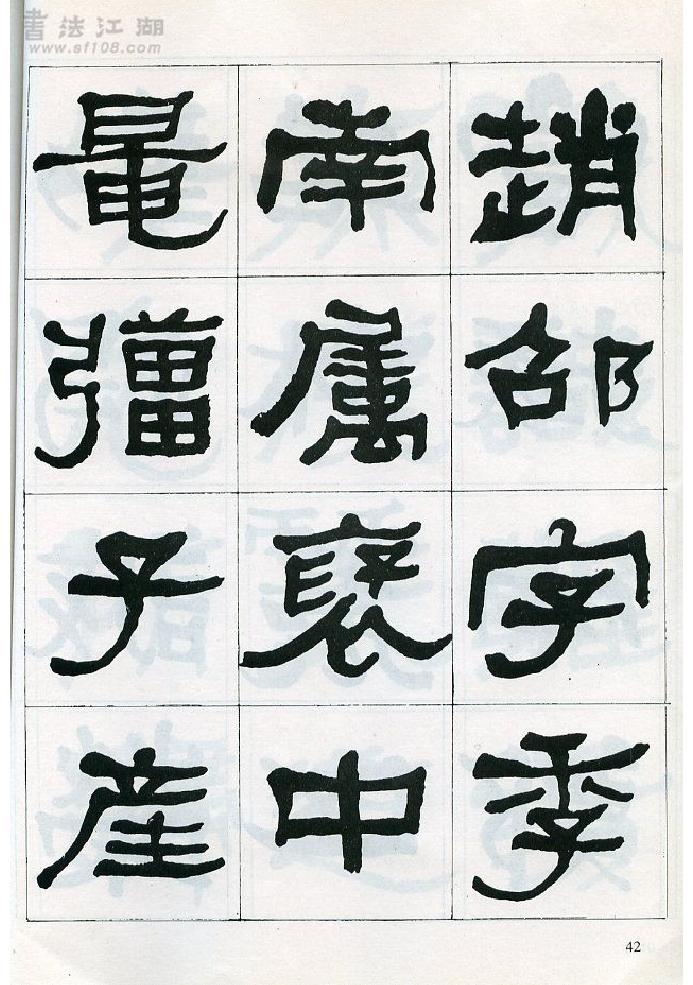 書法江湖
www.sf108.com
趙邵字季
南属褒中
鼂彊子産
42